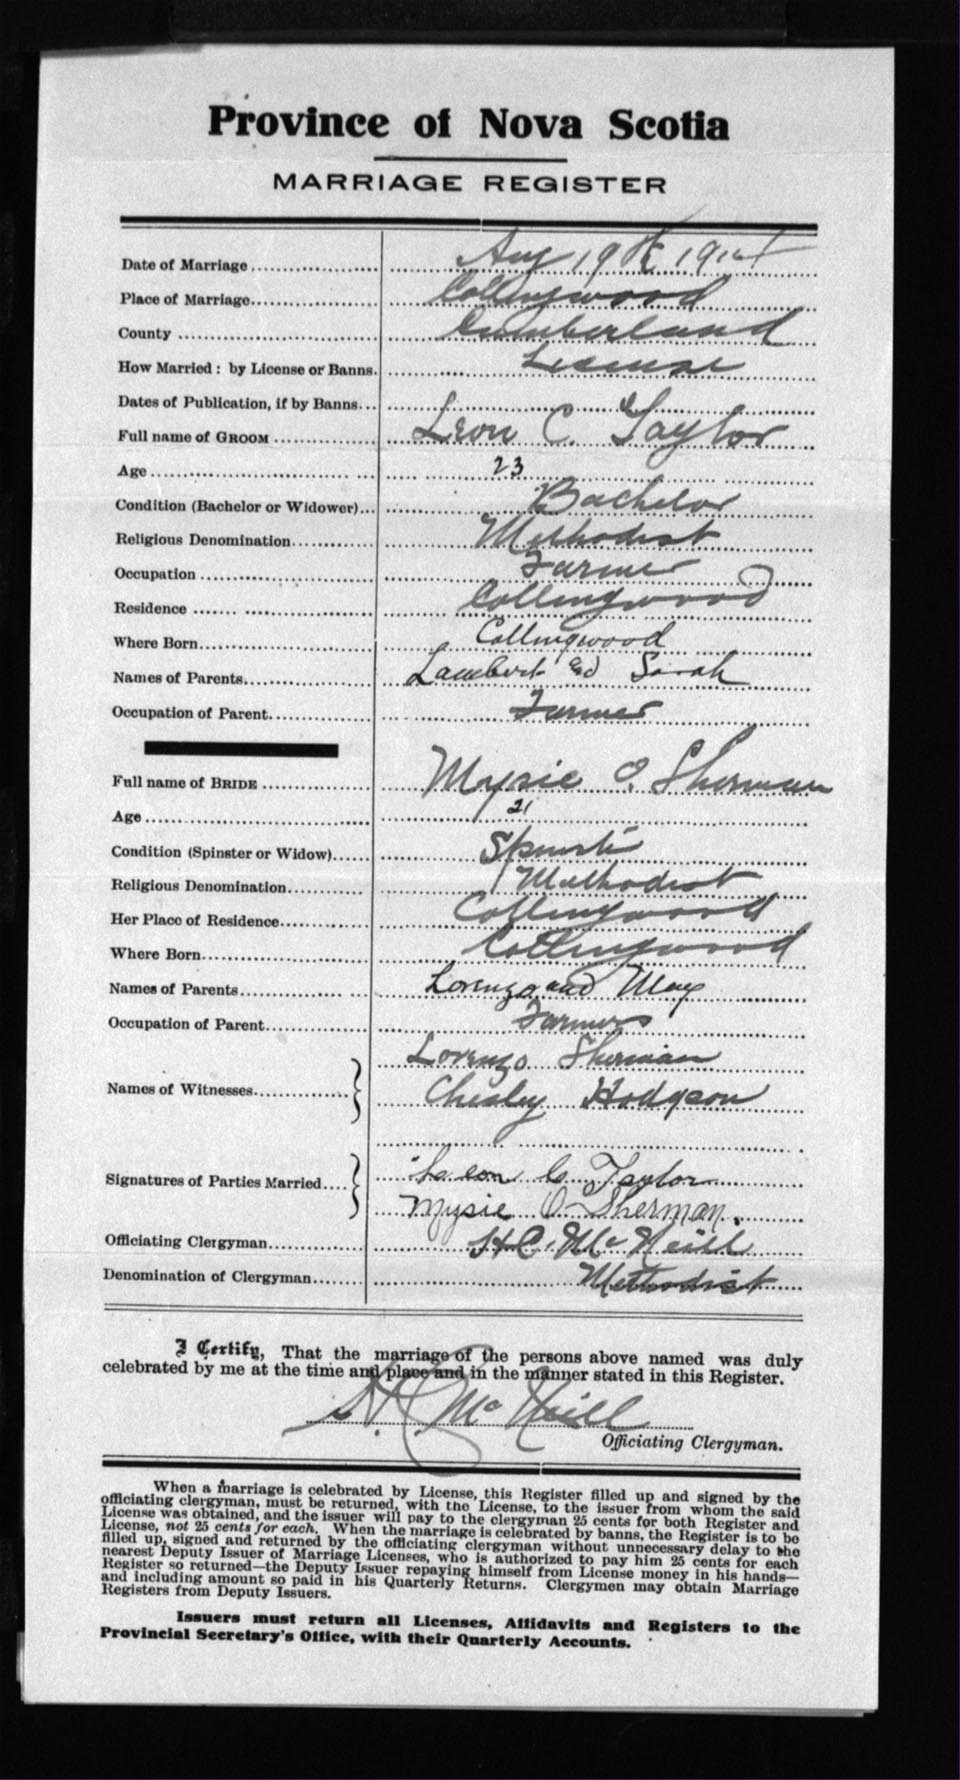 Province of Nova Scotia
MARRIAGE REGISTER
Date of Marriage Aug 19th 1914
Place of Marriage Collingwood
County Cumberland
How Married : by License or Banns. License
Dates of Publication, if by Banns
Full name of GROOM Leon C. Taylor
Age 23
Condition (Bachelor or Widower) Bachelor
Religious Denomination Methodist
Occupation Farmer
Residence Collingwood
Where Born Collingwood
Names of Parents Lambert Sarah
Occupation of Parent Farmer
Full name of BRIDE Mysie O. Sherman
Age 21
Condition (Spinster or Widow)
Religious Denomination Methodist
Her Place of Residence Collingwood
Where Born Collingwood
Names of Parents Lorenzo and May
Occupation of Parent Farmer
Lorenzo Sherman
Names of Witnesses Chesley Hodgson
Leon C Taylor
Signatures of Parties Married
Mysie O Sherman.
Officiating Clergyman H.C. McNeill
Denomination of Clergyman Methodist
I Certify, That the marriage of the persons above named was duly
celebrated by me at the time and place and in the manner stated in this Register.
H.C. McNeill
Officiating Clergyman.
When a marriage is celebrated by License, this Register filled up and signed by the
officiating clergyman, must be returned, with the License, to the issuer from whom the said
License was obtained, and the issuer will pay to the clergyman 25 cents for both Register and
License, not 25 cents for each. When the marriage is celebrated by banns, the Register is to be
filled up, signed and returned by the officiating clergyman without unnecessary delay to the
nearest Deputy Issuer of Marriage Licenses, who is authorized to pay him 25 cents for each
Register so returned—the Deputy Issuer repaying himself from License money in his hands—
and including amount so paid in his Quarterly Returns. Clergymen may obtain Marriage
Registers from Deputy Issuers.
Issuers must return all Licenses, Affidavits and Registers to the
Provincial Secretary's Office, with their Quarterly Accounts.